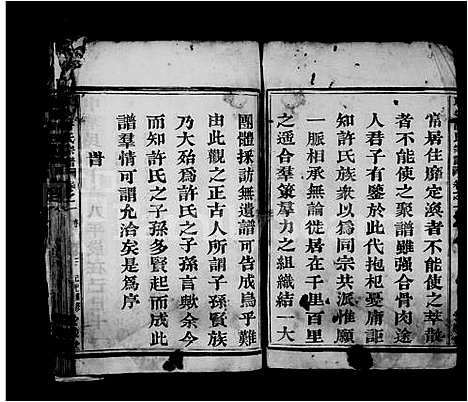 常居住靡定渙者不能使之萃散
者不能使之聚譜雖强合骨肉途
人君子有鑒於此代抱杞憂庸詎
知許氏族衆以爲同宗共派惟願
一脈相承無論徙居在千里百里
之遥合羣策羣力之組織結一大
團體採訪無遺譜可告成烏乎難
由此觀之正古人所謂子孫賢族
乃大殆爲許氏之子孫言歟余今
而知許氏之子孫多賢起而成此
譜羣情可謂允洽矣是爲序
旹